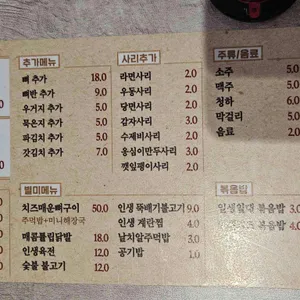 추가메뉴
뼈 추가 18.0
뼈반 추가 9.0
우거지 추가 5.0
묵은지 추가 5.0
파김치 추가 5.0
갓김치 추가 5.0
사리추가
라면사리 2.0
우동사리 2.0
당면사리 2.0
감자사리 3.0
수제비사리 2.0
옹심이만두사리 3.0
깻잎쨍이사리 2.0
주류/음료
소주 5.0
맥주 5.0
청하 6.0
막걸리 5.0
음료 2.0
별미메뉴
치즈매운뼈구이 50.0
주먹밥+미니해장국
매콤튤립닭발 18.0
인생육전 12.0
숯불 불고기 12.0
인생 뚝배기불고기 9.0
인생 계란찜 4.0
날치알주먹밥 4.0
공기밥 1.0
볶음밥
일생일대 볶음밥 3.0
인생 볶음밥 4.0